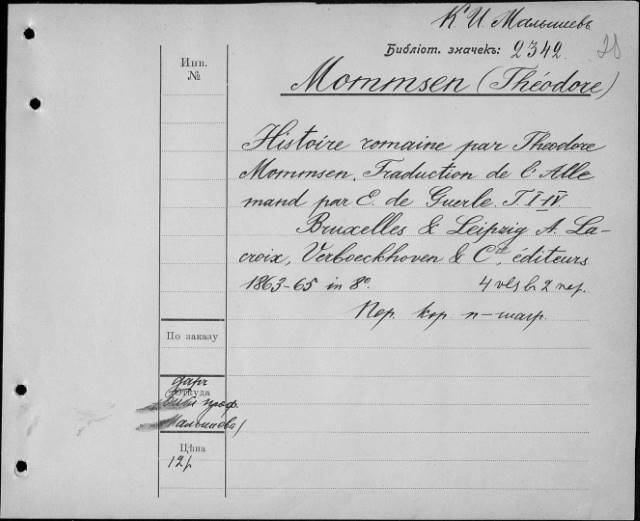 К И Малышевъ
Библіот. значекъ: 2342. 28
Инв.
№
Mommsen (Théodore)
Histoire romaine par Theodore
Mommsen. Traduction de l'Alle
mand par E. de Guerle. T. I-IV
Bruxelles & Leipzig A. La-
croix, Verboeckhoven & Cie, éditeurs
1863-65 in 8o. 4 vls в 2 пер.
Пер. кор п-шагр.
По заказу
даръ
Откуда
проф.
Малышева)
Цѣна
12р